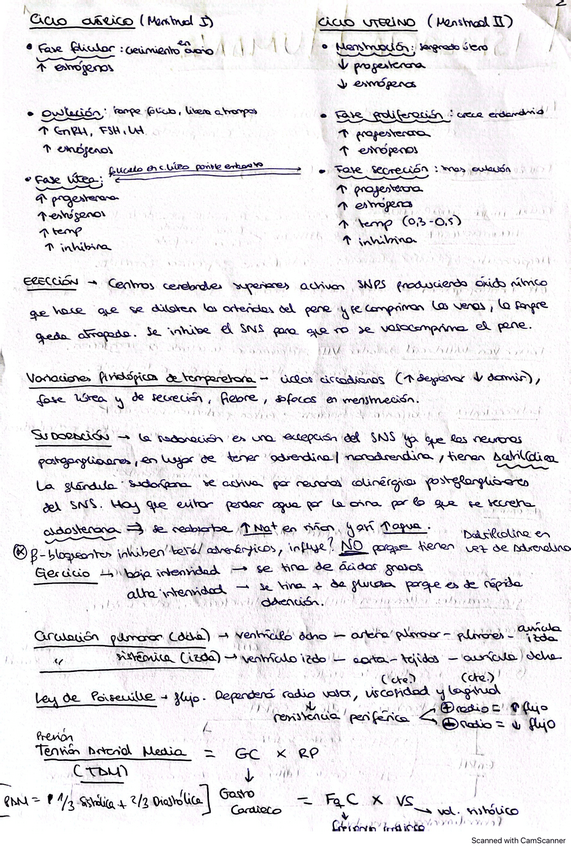 2
Ciclo ovárico (Menstrual I)
• Fase folicular: crecimiento en ovario
↑ estrógenos
• Ovulación: rompe folículo, libera a trompas
↑ GnRH, FSH, LH
↑ estrógenos
• Fase lútea:
↑ progesterona
↑ estrógenos
↑ temp
↑ inhibina
CICLO UTERINO (Menstrual II)
• Menstruación: sangrado útero
↓ progesterona
↓ estrógenos
• Fase proliferación: crece endometrio
↑ progesterona
↑ estrógenos
• Fase secreción: tras ovulación
↑ progesterona
↑ estrógenos
↑ temp (0,3-0,5)
↑ inhibina
ERECCIÓN → Centros cerebrales superiores activan SNPS produciendo óxido nítrico
que hace que se dilaten las arterias del pene y se compriman las venas, la sangre
queda atrapada. Se inhibe el SNS para que no se vasocomprima el pene.
Variaciones fisiológicas de temperatura - ciclos circadianos (↑ despertar ↓ dormir),
fase lútea y de secreción, fiebre, sofocos en menstruación.
SUDORACIÓN → la sudoración es una excepción del SNS ya que las neuronas
postganglionares, en lugar de tener adrenalina / noradrenalina, tienen
La glándula sudorípara se activa por neuronas colinérgicas postganglionares
del SNS. Hay que evitar perder agua por la orina por lo que se secreta
aldosterona ⇒ se reabsorbe ↑Na+ en riñón y así ↑agua.
β-bloqueantes inhiben beta/adrenérgicos, influye? NO porque tienen
en vez de adrenalina
Ejercicio ↳ baja intensidad → se tira de ácidos grasos
alta intensidad → se tira + de glucosa porque es de rápida
obtención.
Circulación pulmonar (dcha) → ventrículo dcho - arteria pulmonar - pulmones - aurícula izda
" sistémica (izda) → ventrículo izdo - aorta - tejidos - aurícula dcha
(cte) (cte)
Ley de Poiseuille → flujo. Dependerá radio vaso, viscosidad y longitud
↓
resistencia periférica < ⊕ radio = ↑ flujo
⊖ radio = ↓ flujo
Presión
Tensión Arterial Media = GC × RP
(TAM)
↓
[PAM = 1/3 Sistólica + 2/3 Diastólica] Gasto Cardiaco = FqC × VS → vol. sistólico
↓
Scanned with CamScanner